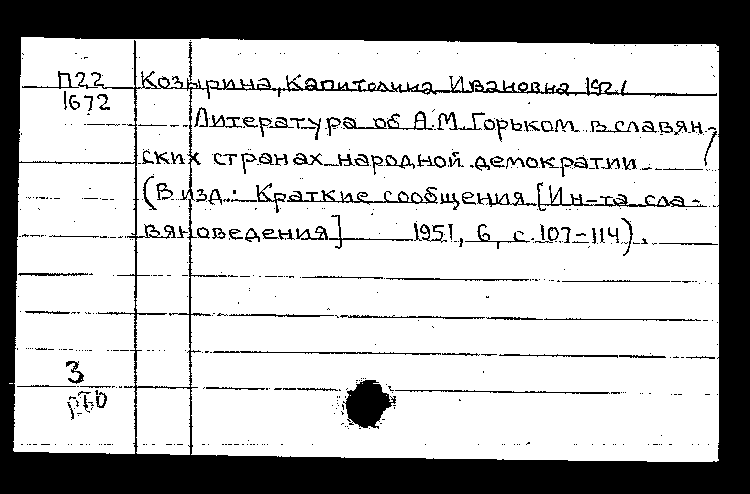 П22 Козырина, Капитолина Ивановна 1921
1672
Литература об А.М. Горьком в славян-
ских странах народной демократии
(В изд.: Краткие сообщения [Ин-та сла-
вяноведения] 1951, 6, с. 107-114).
3